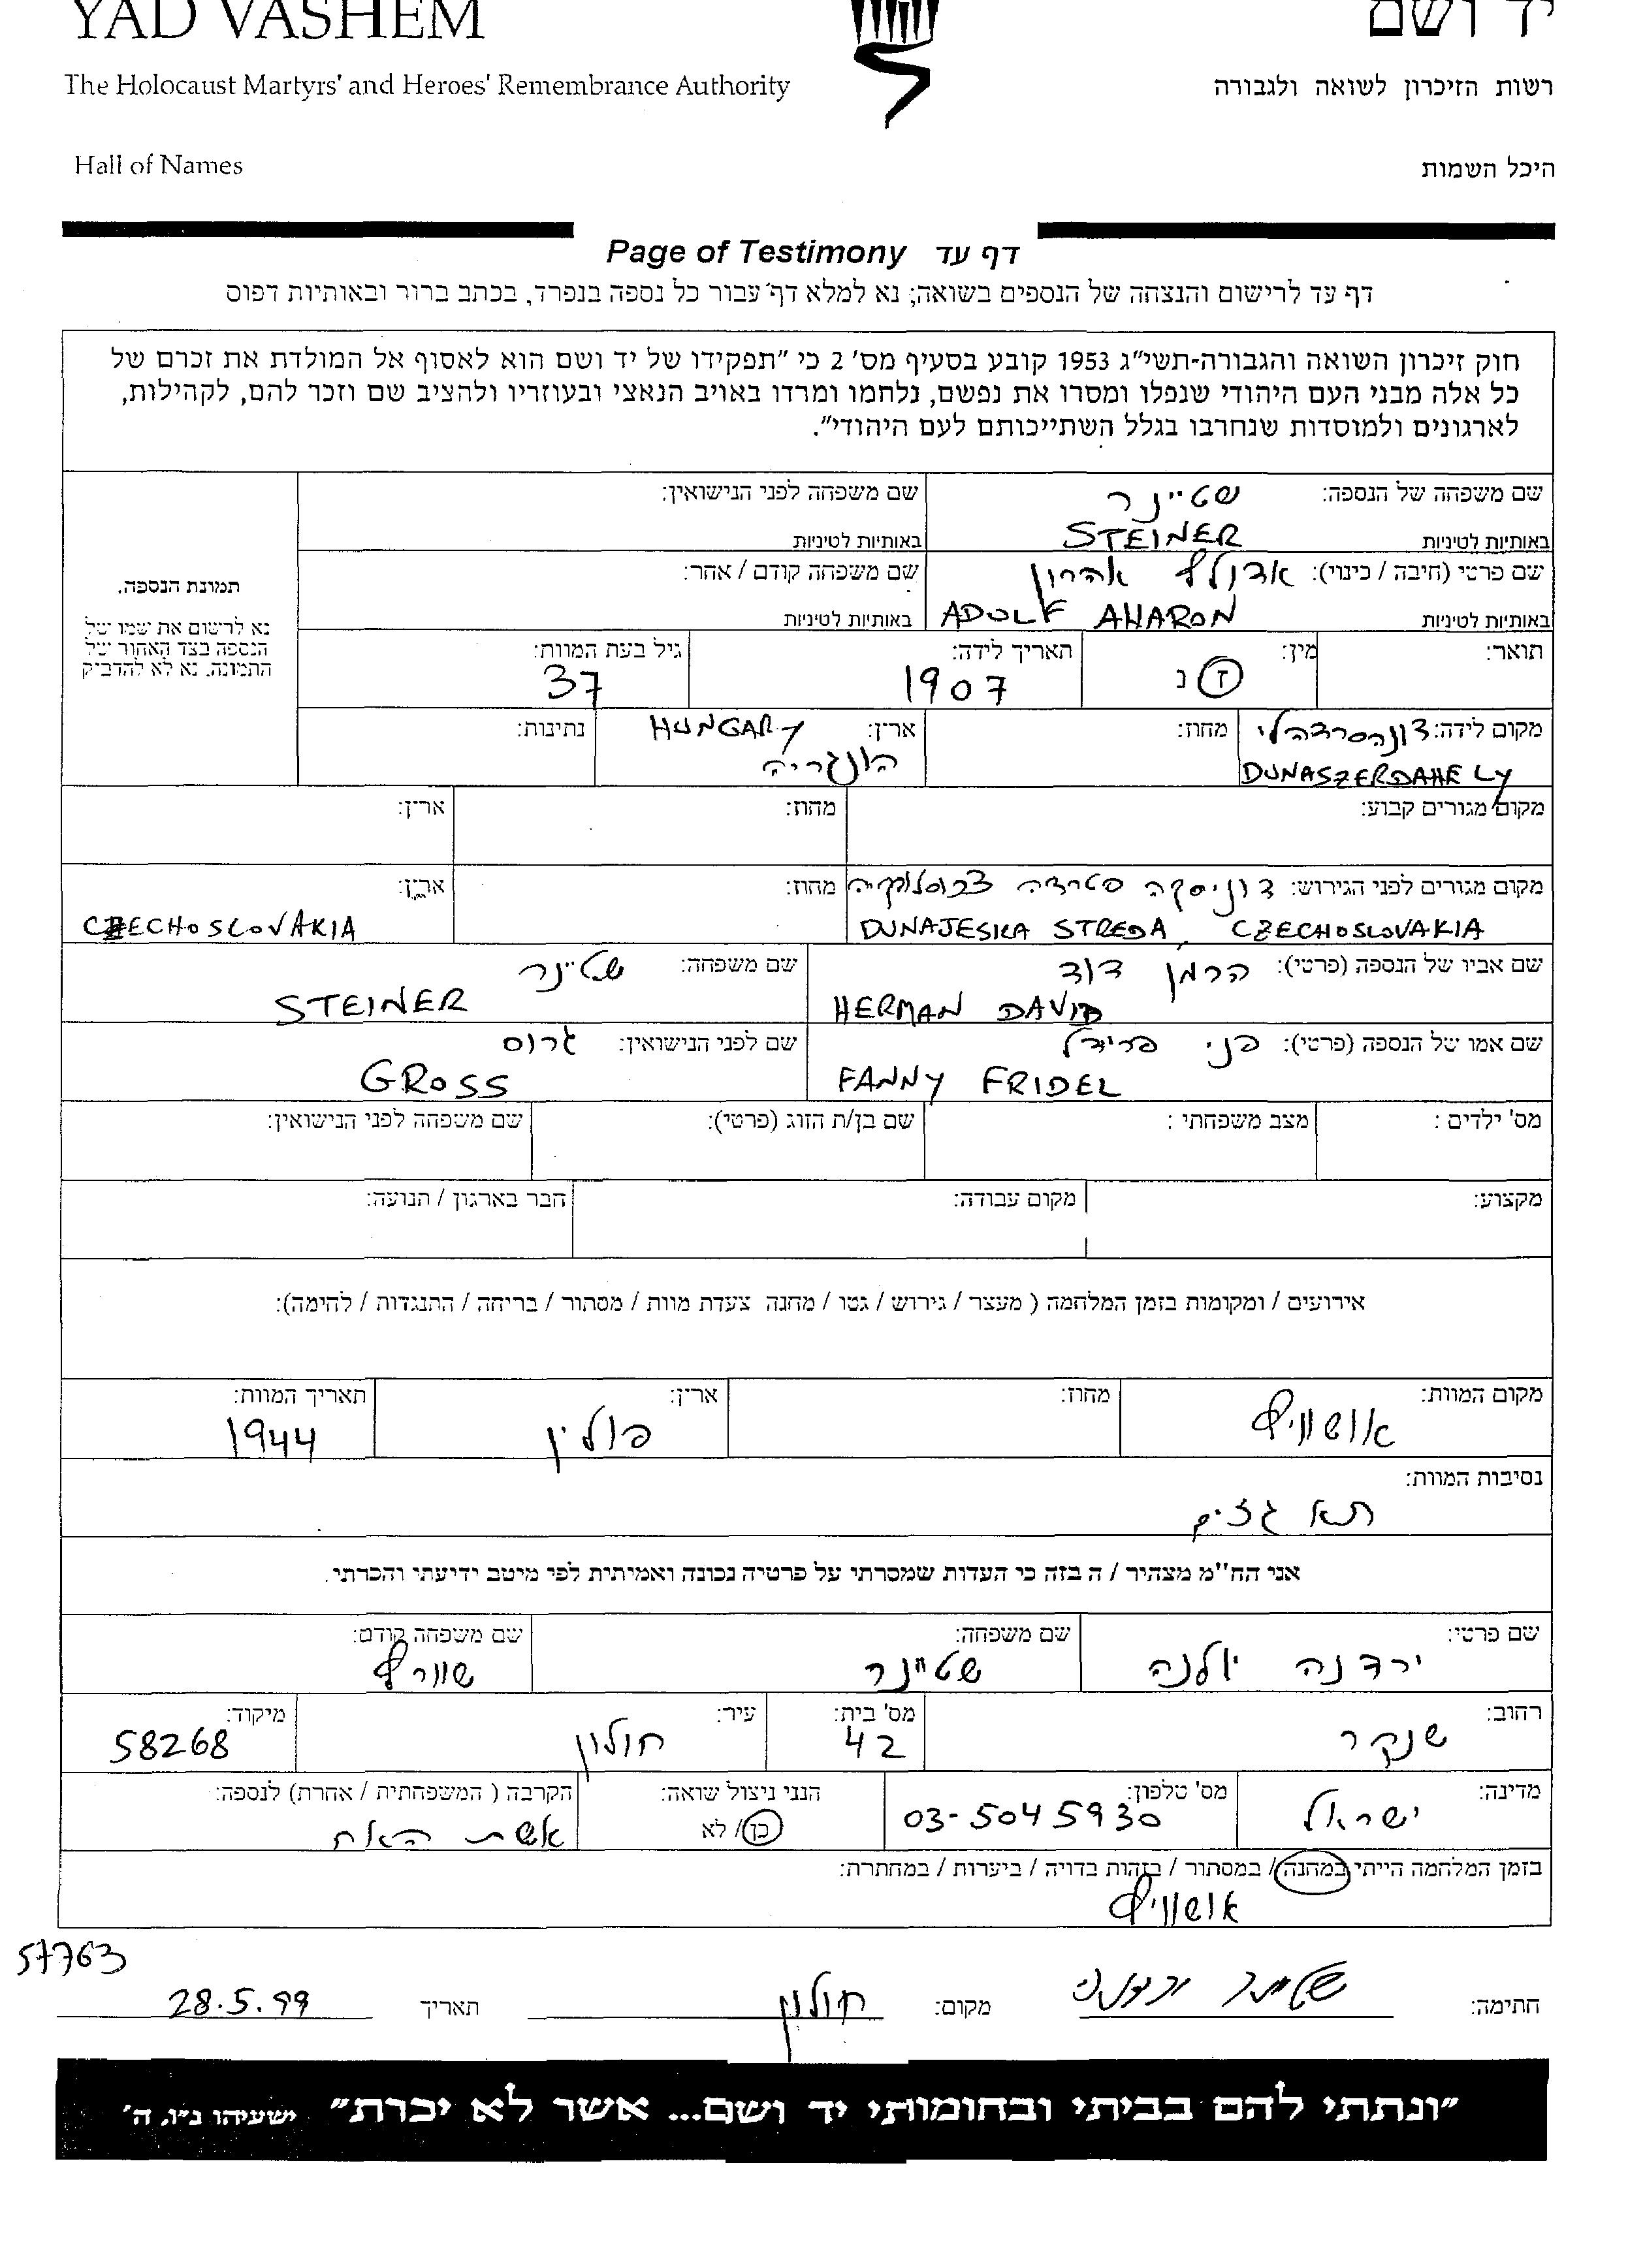 YAD VASHEM יד ושם
The Holocaust Martyrs' and Heroes' Remembrance Authority רשות הזיכרון לשואה ולגבורה
Hall of Names היכל השמות
Page of Testimony דף עד
דף עד לרישום והנצחה של הנספים בשואה; נא למלא דף עבור כל נספה בנפרד, בכתב ברור ובאותיות דפוס
חוק זיכרון השואה והגבורה-תשי"ג 1953 קובע בסעיף מס' 2 כי "תפקידו של יד ושם הוא לאסוף אל המולדת את זכרם של
כל אלה מבני העם היהודי שנפלו ומסרו את נפשם, נלחמו ומרדו באויב הנאצי ובעוזריו ולהציב שם וזכר להם, לקהילות,
לארגונים ולמוסדות שנחרבו בגלל השתייכותם לעם היהודי".
שם משפחה של הנספה: שטיינר שם משפחה לפני הנישואין:
באותיות לטיניות STEINER באותיות לטיניות
שם פרטי (חיבה / כינוי): אדולף אהרון שם משפחה קודם / אחר:
באותיות לטיניות ADOLF AHARON באותיות לטיניות
תמונת הנספה.
נא לרשום את שמו של
הנספה בצד האחור של
התמונה. נא לא להדביק
תואר: מין: ז נ תאריך לידה: 1907 גיל בעת המוות: 37
מקום לידה: דונהסרדהלי מחוז: ארץ: HUNGARY נתינות:
DUNASZERDAHELY הונגריה
מקום מגורים קבוע: מחוז: ארץ:
מקום מגורים לפני הגירוש: דוניסקה סטרדה צכוסלוקיה מחוז: ארץ:
DUNAJESKA STREDA, CZECHOSLOVAKIA CZECHOSLOVAKIA
שם אביו של הנספה (פרטי): הרמן דוד שם משפחה: שטיינר
HERMAN DAVID STEINER
שם אמו של הנספה (פרטי): פני פרידל שם לפני הנישואין: גרוס
FANNY FRIDEL GROSS
מס' ילדים : מצב משפחתי : שם בן/ת הזוג (פרטי): שם משפחה לפני הנישואין:
מקצוע: מקום עבודה: חבר בארגון / תנועה:
אירועים / ומקומות בזמן המלחמה ( מעצר / גירוש / גטו / מחנה צעדת מוות / מסתור / בריחה / התנגדות / לחימה):
מקום המוות: אושוויץ מחוז: ארץ: פולין תאריך המוות: 1944
נסיבות המוות:
תא גזים
אני הח"מ מצהיר / ה בזה כי העדות שמסרתי על פרטיה נכונה ואמיתית לפי מיטב ידיעתי והכרתי.
שם פרטי: ירדנה יולנה שם משפחה: שטיינר שם משפחה קודם: שוורץ
רחוב: שנקר מס' בית: 42 עיר: חולון מיקוד: 58268
מדינה: ישראל מס' טלפון: 03-5045930 הנני ניצול שואה: כן / לא הקרבה ( המשפחתית / אחרת) לנספה: אשת האח
בזמן המלחמה הייתי במחנה / במסתור / בזהות בדויה / ביערות / במחתרת:
אושוויץ
57763
חתימה: שטיינר ירדנה מקום: חולון תאריך 28.5.99
"ונתתי להם בביתי ובחומותי יד ושם... אשר לא יכרת" ישעיהו נ"ו, ה'